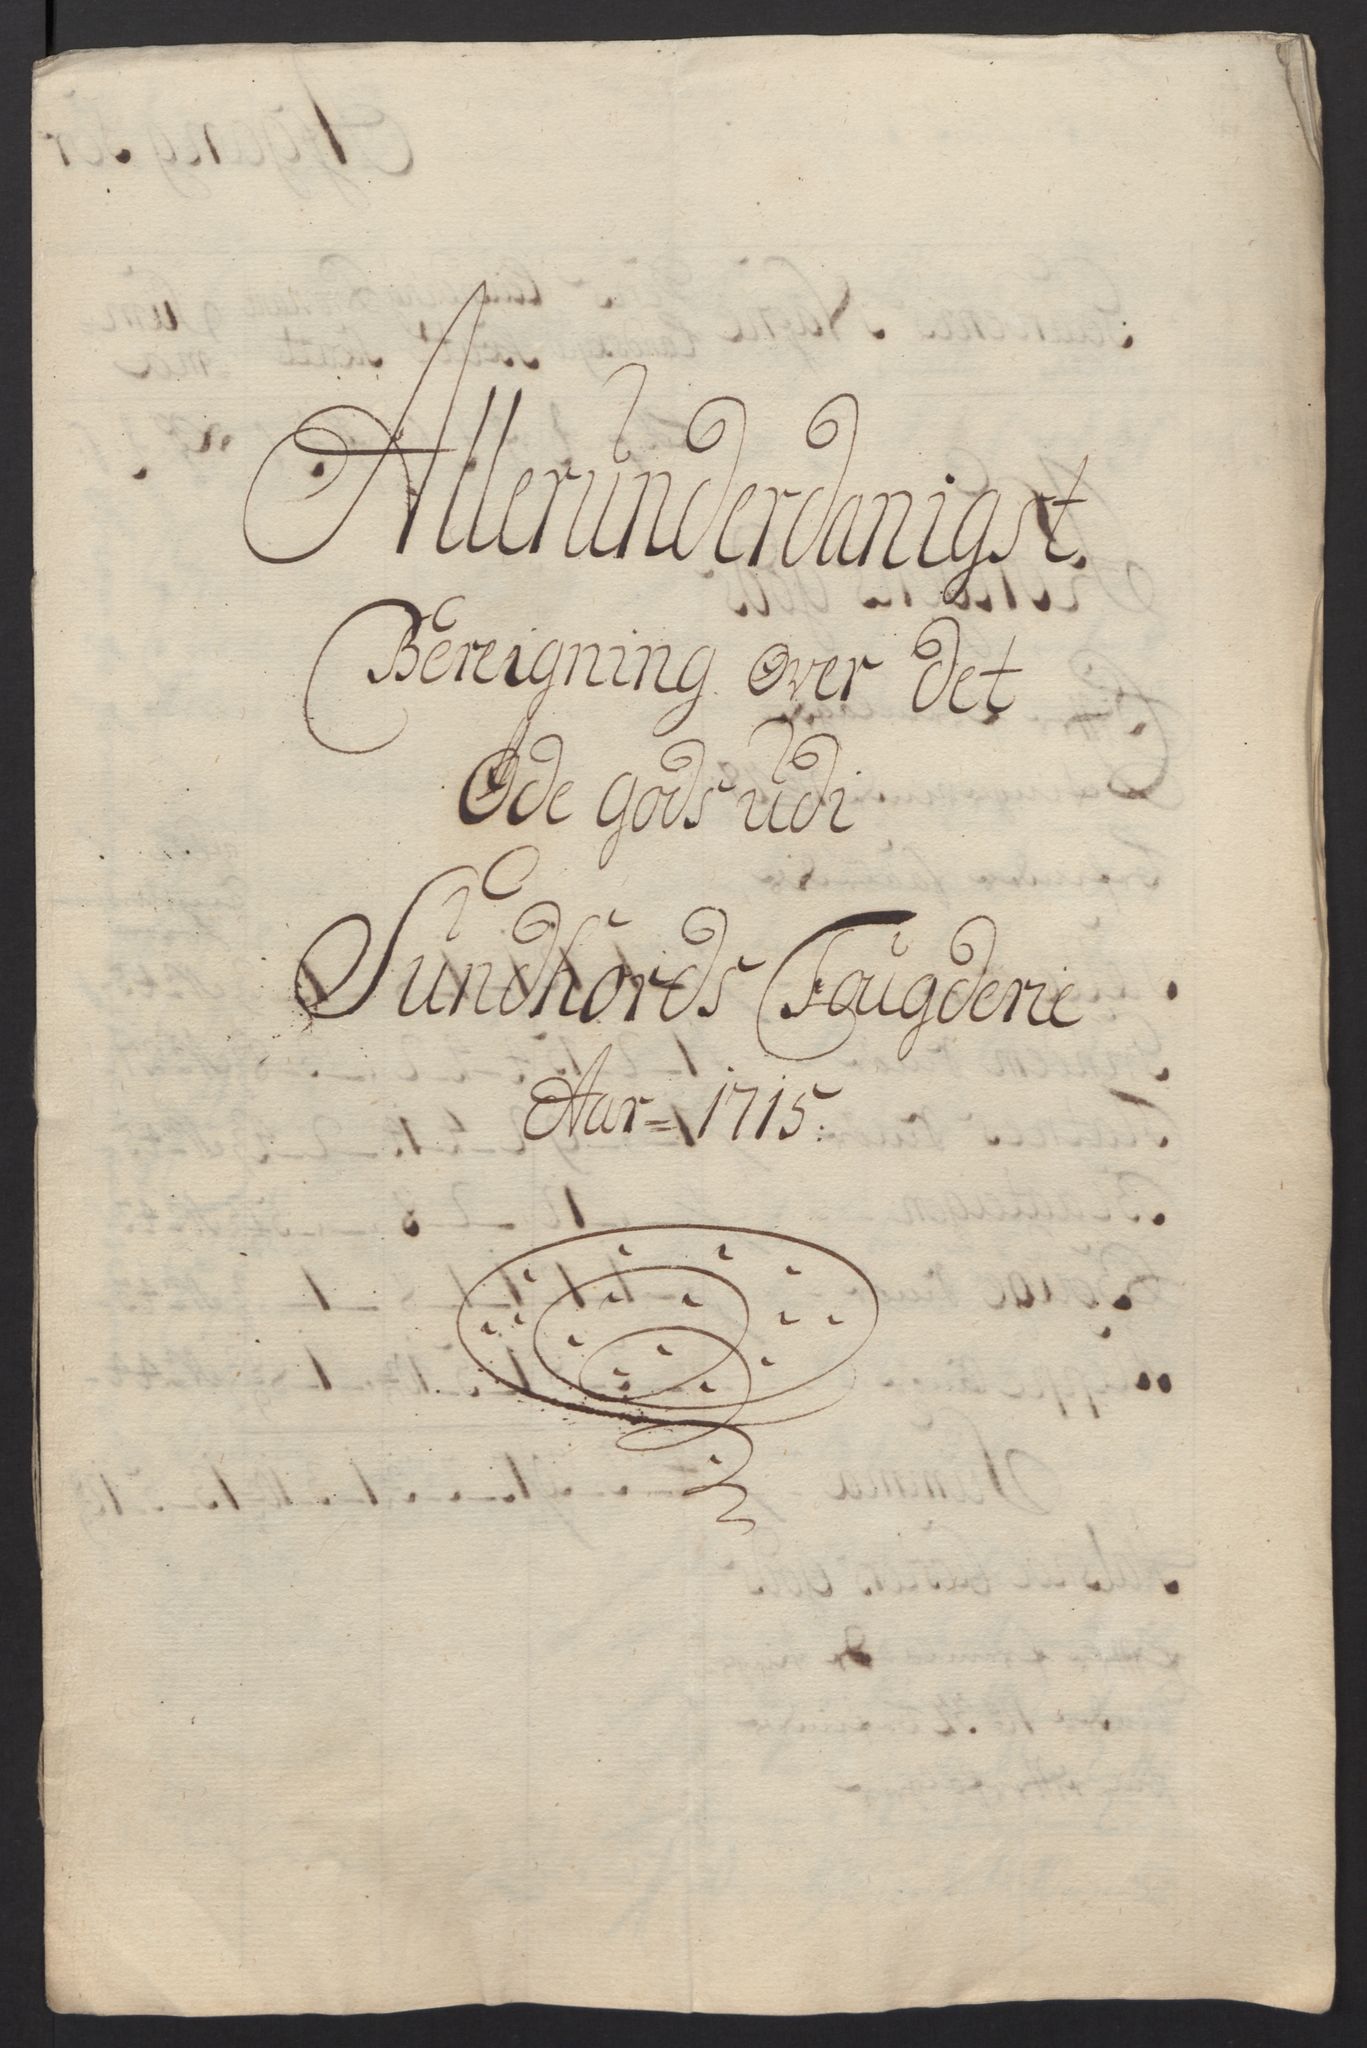 Allerunderdanigst
Bereigning over det
Øde gods udi
Sundhords Fougderie
Aar= 1715: